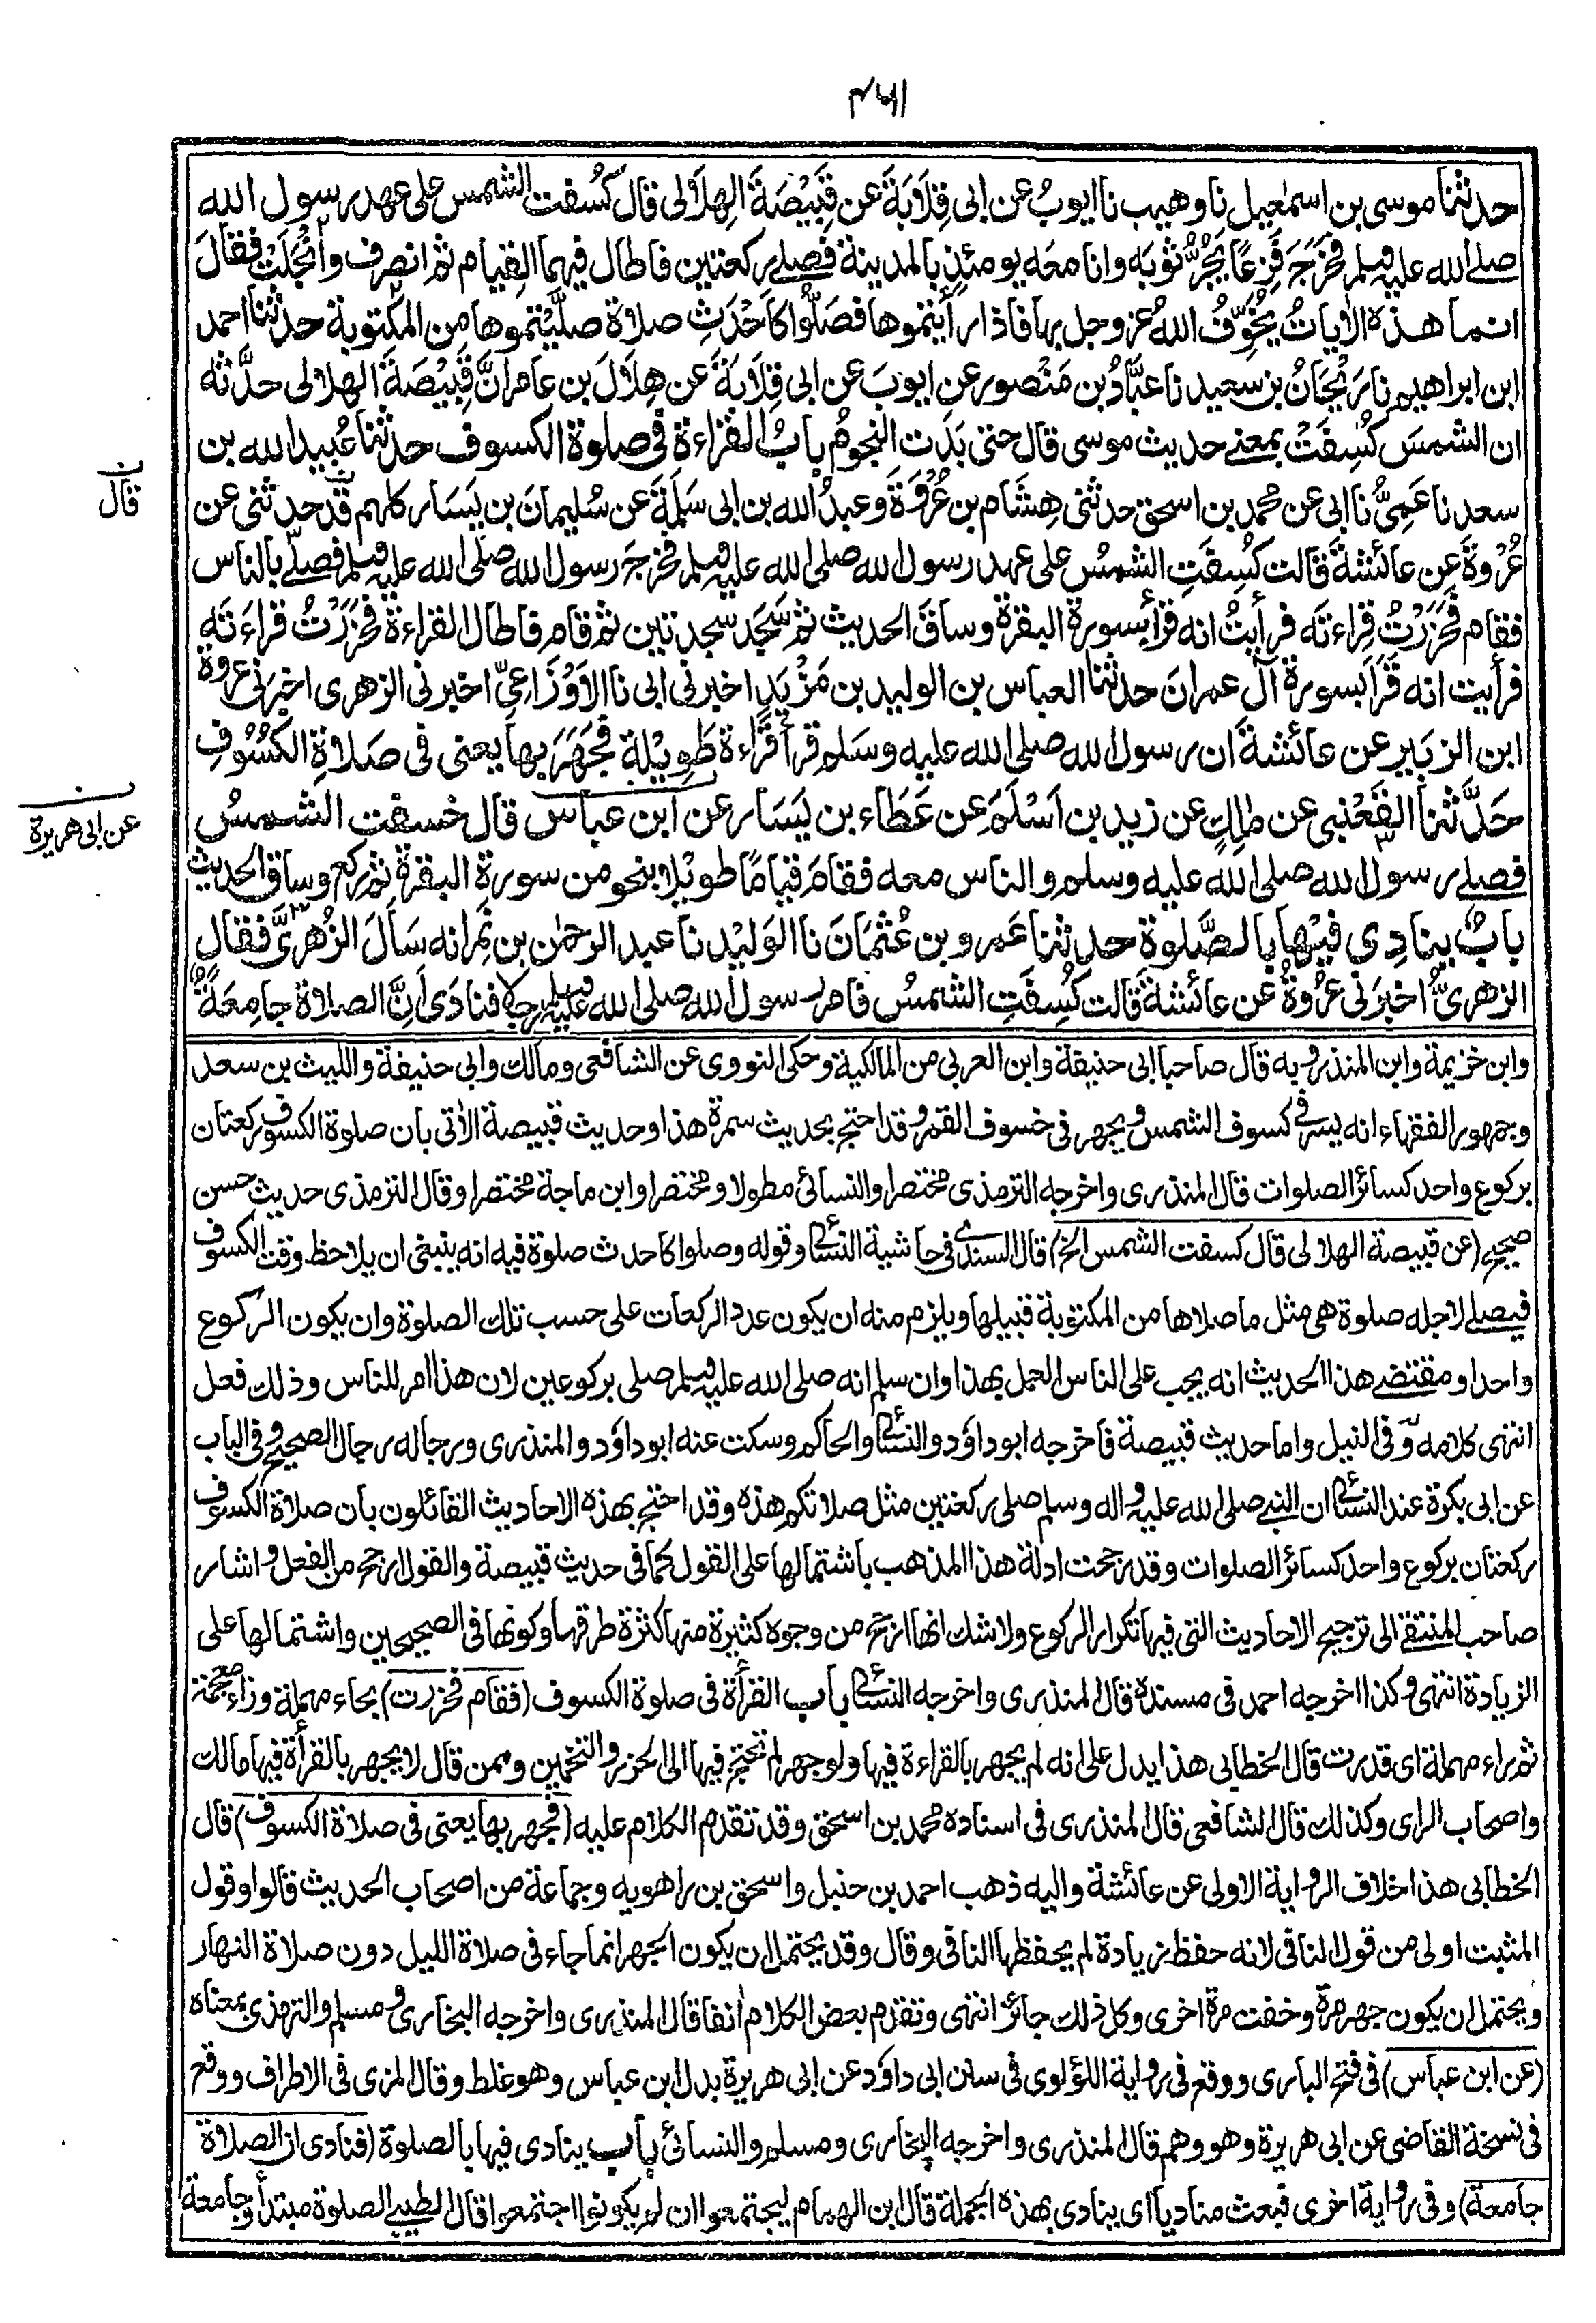 ٤٦١١
حدثنا موسى بن اسمعيل نا وهيب نا ايوبُ عن ابى قِلَابَةَ عن قَبِيْصَةَ الهِلَالى قال كُسفت الشمس على عهد رسول الله
صلے الله عليه وسلم فخَرَجَ فَزِعًا يَجُرُّ ثوبَه وانا معَه يومئذٍ بالمدينة فصلے ركعتين فاطال فيهما القيام ثم انصرف وانْجَلَتْ فقال
انما هذه الاٰياتُ يُخَوِّفُ اللهُ عز وجل بها فاذا رأيتموها فصَلُّوا كأَحْدَثِ صلاة صلَّيْتموها من المكتوبة حدثنا احمد
ابن ابراهيم نا رَيْحَانُ بن سعيد نا عَبَّادُ بن مَنْصور عن ايوبَ عن ابى قِلَابَةَ عن هِلَالَ بن عامر انَّ قَبِيْصَةَ الهلالى حدَّثه
ان الشمسَ كُسِفَتْ بمعنے حديث موسى قال حتى بَدَت النجومُ بابُ القراءة فى صلوة الكسوف حدثنا عُبيد الله بن
سعد نا عَمِّىْ نا ابى عن محمد بن اسحق حدثنى هِشَام بن عُرْوَةَ وعبدُ الله بن ابى سَلَمَةَ عن سُليمانَ بن يَسَار كلهم قد حدثنى عن
قال
عُرْوَةَ عن عائشةَ قالت كُسِفَتِ الشمسُ على عهد رسول الله صلى الله عليه وسلم فخرجَ رسول الله صلى الله عليه وسلم فصلّے بالناس
فقام فحَزَرْتُ قراءتَه فرأيتُ انه قرأ سورة البقرة وساقَ الحديث ثم سَجَد سجدتين ثم قام فاطال القراءة فحَزَرْتُ قراءَتَه
فرأيت انه قَرَأ بسورة آل عمرانَ حدثنا العباس بن الوليد بن مَزْيَدٍ اخبرنى ابى نا الاَوْزَاعِىّ اخبرنى الزهرى اخبَرَنى عروة
ابن الزبَير عن عائشةَ ان رسول الله صلى الله عليه وسَلم قرأ قراءة طَوِيْلة فجَهَرَ بها يعنى فى صَلَاةِ الكسُوْفِ
حَدَّثنا القَعْنبى عن مالكٍ عن زيد بن اَسْلَمَ عن عَطَاء بن يَسَار عن ابن عباس قال خسفت الشمسُ
عن ابى هريرة
فصلے رسول الله صلى الله عليه وسلم والناس معه فقامَ قيامًا طويلا بنحو من سورة البقرة ثم ركع وساق الحديث
بابُ ينادِى فيْها بالصَّلوة حدثنا عَمرو بن عُثمَانَ نا الوَليْد نا عبد الرحمٰن بن نمرانه سَألَ الزُهرىَّ فقال
الزهرىُّ اخبَرَنى عُرْوةُ عن عائشةَ قالت كُسِفَتِ الشمسُ فامر رسول الله صلى الله عليه وسلم رجلا فنادَى اَنِّ الصلاةَ جامِعَةٌ
وابن خزيمة وابن المنذر وبه قال صاحبا ابى حنيفة وابن العربى من المالكية وحكى النووى عن الشافعى ومالك وابى حنيفة والليث بن سعد
وجمهور الفقهاء انه يسر فى كسوف الشمس ويجهر فى خسوف القمر وقد احتج بحديث سمرة هذا وحديث قبيصة الاٰتى بان صلوة الكسوف ركعتان
بركوع واحد كسائر الصلوات قال المنذرى واخرجه الترمذى مختصرا والنسائى مطولا ومختصرا وابن ماجة مختصرا وقال الترمذى حديث حسن
صحيح (عن قبيصة الهلالى قال كسفت الشمس الخ) قال السندى فى حاشية النسائى وقوله وصلوا كاحدث صلوة فيه انه ينبغى ان يلاحظ وقت الكسوف
فيصلے لاجله صلوة هى مثل ما صلاها من المكتوبة قبيلها ويلزم منه ان يكون عدد الركعات على حسب تلك الصلوة وان يكون الركوع
واحدا ومقتضے هذا الحديث انه يجب على الناس العمل بهذا وان سلم انه صلى الله عليه وسلم صلى بركوعين لان هذا امر للناس وذلك فعل
انتهى كلامه وفى النيل واما حديث قبيصة فاخرجه ابو داؤد والنسائى والحاكم وسكت عنه ابو داؤد والمنذرى ورجاله رجال الصحيح وفى الباب
عن ابى بكرة عند النسائى ان النبے صلى الله عليه واله وسلم صلى ركعتين مثل صلاتكم هذه وقد احتج بهذه الاحاديث القائلون بان صلاة الكسوف
ركعتان بركوع واحد كسائر الصلوات وقد رجحت ادلة هذا المذهب باشتمالها على القول كما فى حديث قبيصة والقول ارجح من الفعل واشار
صاحب المنتقے الى ترجيح الاحاديث التى فيها تكرار الركوع ولا شك انها ارجح من وجوه كثيرة منها كثرة طرقها وكونها فى الصحيحين واشتمالها على
الزيادة انتهى وكذا اخرجه احمد فى مسنده قال المنذرى واخرجه النسائى باب القرأة فى صلوة الكسوف (فقام فحزرت) بحاء مهملة وزاء معجمة
ثم راء مهملة اى قدرت قال الخطابى هذا يدل على انه لم يجهر بالقراءة فيها ولو جهر لم تحتج فيها الى الحزر والتخمين وممن قال لا يجهر بالقرأة فيها مالك
واصحاب الراى وكذلك قال الشافعى قال المنذرى فى اسناده محمد بن اسحق وقد تقدم الكلام عليه (فجهر بها يعنى فى صلاة الكسوف) قال
الخطابى هذا خلاف الرواية الاولى عن عائشة واليه ذهب احمد بن حنبل واسحق بن راهويه وجماعة من اصحاب الحديث قالوا وقول
المثبت اولى من قول النافى لانه حفظ زيادة لم يحفظها النافى وقال وقد يحتمل ان يكون الجهر انما جاء فى صلاة الليل دون صلاة النهار
ويحتمل ان يكون جهر مرة وخفت مرة اخرى وكل ذلك جائز انتهى وتقدم بعض الكلام اٰنفا قال المنذرى واخرجه البخارى ومسلم والترمذى بمعناه
(عن ابن عباس) فى فتح البارى ووقع فى رواية اللؤلوى فى سنن ابى داؤد عن ابى هريرة بدل ابن عباس وهو غلط وقال المزى فى الاطراف ووقع
فى نسخة القاضى عن ابى هريرة وهو وهم قال المنذرى واخرجه البخارى ومسلم والنسائى باب ينادى فيها بالصلوة (فنادى ان الصلاة
جامعة) وفى رواية اخرى فبعث مناديا اى ينادى بهذه الجملة قال ابن الهمام ليجتمعوا ان لم يكونوا اجتمعوا قال الطيبے الصلوة مبتدأ وجامعة